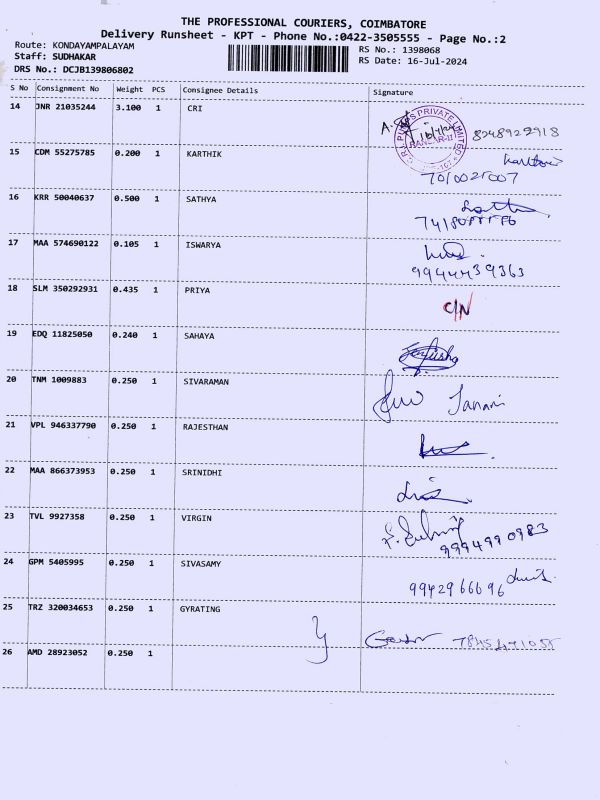 THE PROFESSIONAL COURIERS, COIMBATORE
Delivery Runsheet - KPT - Phone No.:0422-3505555 - Page No.:2
Route: KONDAYAMPALAYAM
RS No.: 1398068
Staff: SUDHAKAR
RS Date: 16-Jul-2024
DRS No.: DCJB139806802
S No Consignment No Weight PCS Consignee Details Signature
14 JNR 21035244 3.100 1 CRI 8248922918
15 CDM 55275785 0.200 1 KARTHIK
16 KRR 50040637 0.500 1 SATHYA
17 MAA 574690122 0.105 1 ISWARYA
9944439363
18 SLM 350292931 0.435 1 PRIYA C/N
19 EDQ 11825050 0.240 1 SAHAYA
20 TNM 1009883 0.250 1 SIVARAMAN Janani
21 VPL 946337790 0.250 1 RAJESTHAN
22 MAA 866373953 0.250 1 SRINIDHI
23 TVL 9927358 0.250 1 VIRGIN
9994990983
24 GPM 5405995 0.250 1 SIVASAMY
9942966696
25 TRZ 320034653 0.250 1 GYRATING
26 AMD 28923052 0.250 1